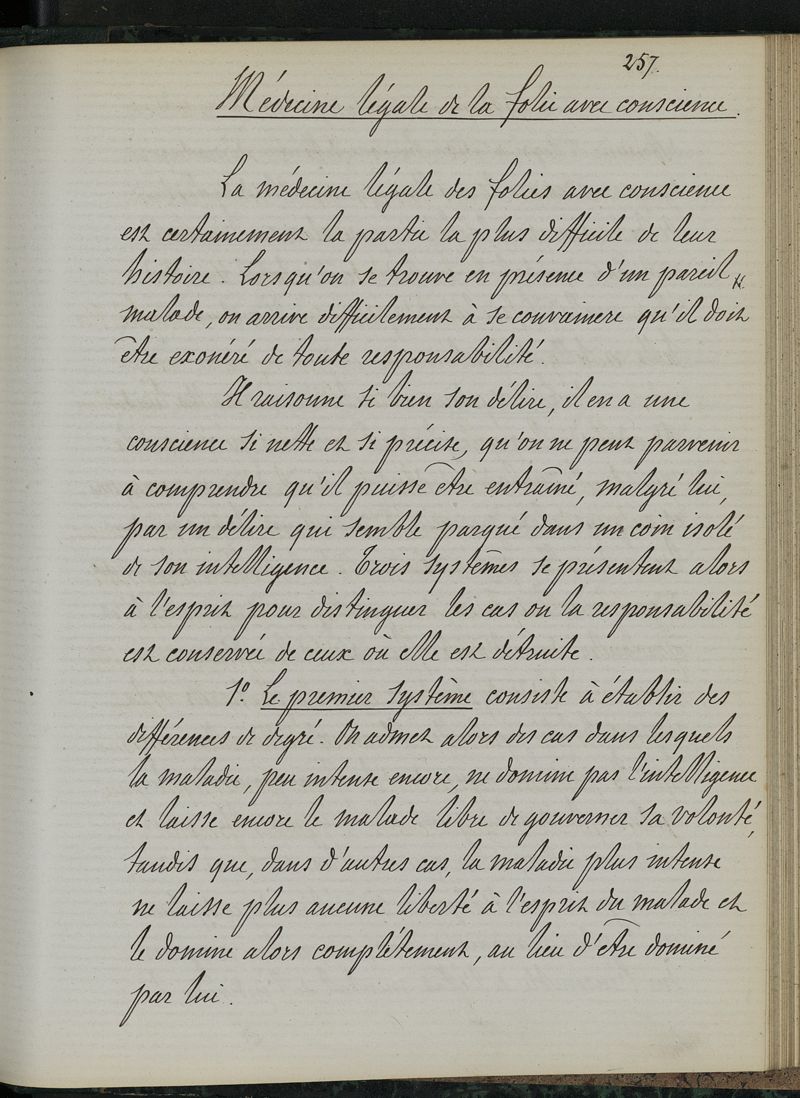 257.
Médecine légale de la folie avec conscience.
La médecine légale des folies avec conscience
est certainement la partie la plus difficile de leur
histoire. Lorsqu'on se trouve en présence d'un pareil
malade, on arrive difficilement à se convaincre qu'il doit
être exonéré de toute responsabilité.
Il raisonne si bien son délire, il en a une
conscience si nette et si précise, qu'on ne peut parvenir
à comprendre qu'il puisse être entraîné, malgré lui,
par un délire qui semble parqué dans un coin isolé
de son intelligence. Trois systèmes se présentent alors
à l'esprit pour distinguer les cas ou la responsabilité
est conservée de ceux où elle est détruite.
1º. Le premier système consiste à établir des
différences de degré. On admet alors des cas dans lesquels
la maladie, peu intense encore, ne domine pas l'intelligence
et laisse encore le malade libre de gouverner sa volonté,
tandis que, dans d'autres cas, la maladie plus intense
ne laisse plus aucune liberté à l'esprit du malade et
le domine alors complétement, au lieu d'être dominé
par lui.